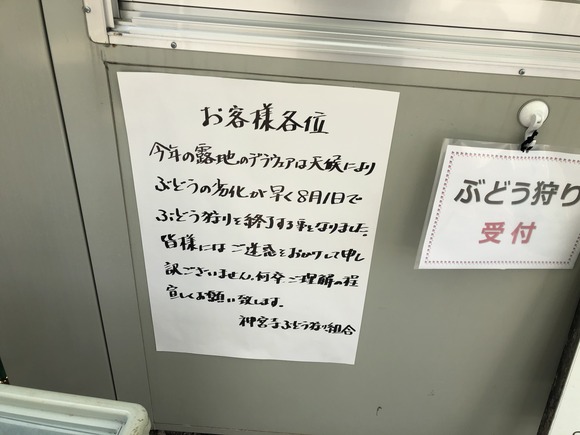 お客様各位
今年の露地のデラウェアは天候により
ぶどうの劣化が早く8月1日で
ぶどう狩りを終了する事となりました。
皆様にはご迷惑をおかけして申し
訳ございません。何卒ご理解の程
宜しくお願い致します。
神宮寺ぶどう狩り組合
ぶどう狩り
受付